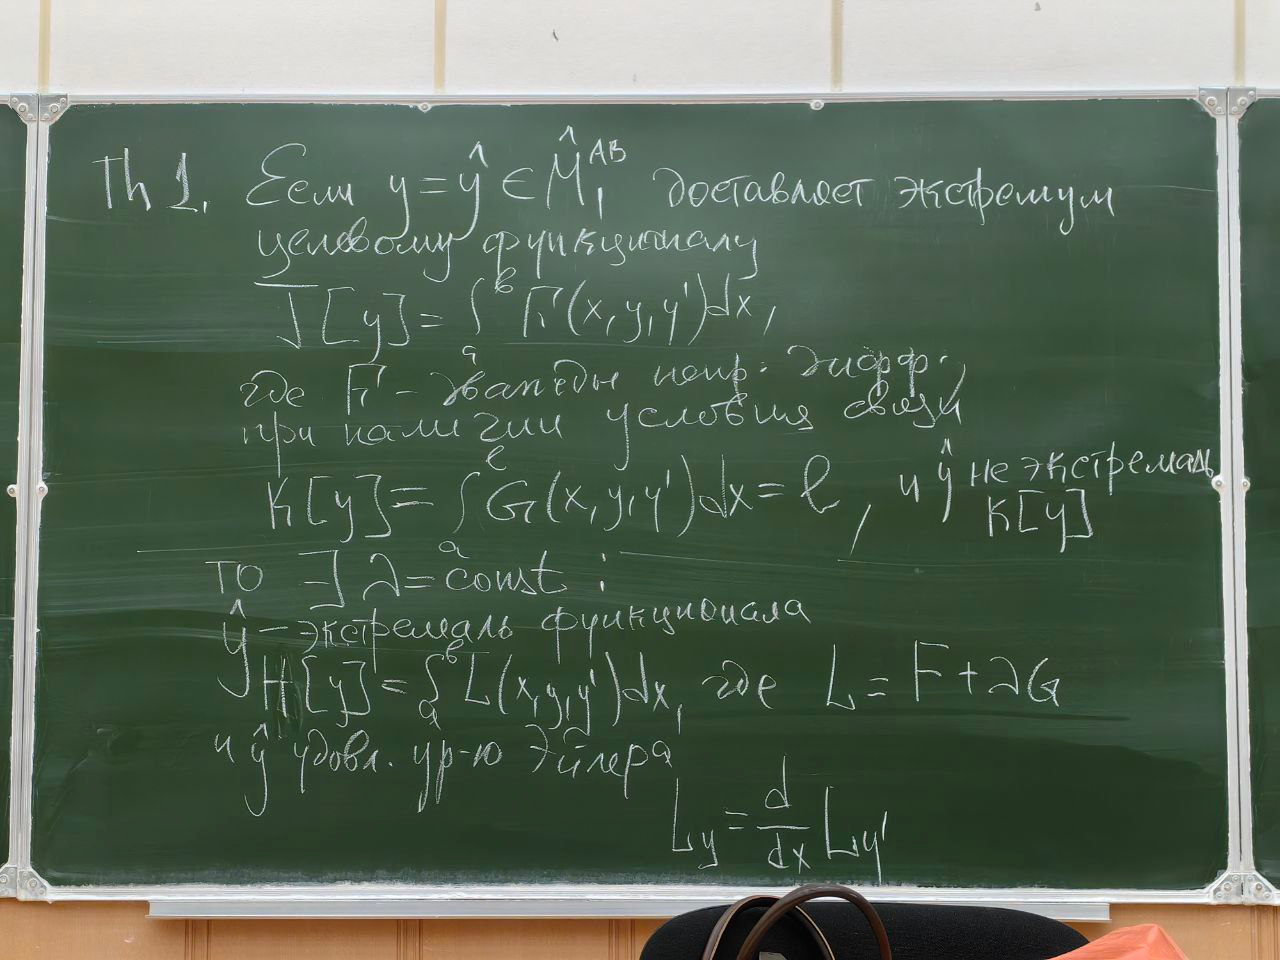 Th 1. Если y = ŷ ∈ M̂₁ᴬᴮ доставляет экстремум
целевому функционалу
J[y] = ∫ₐᵇ F(x, y, y')dx,
где F - дважды непр. дифф.,
при наличии условия связи
K[y] = ∫ₐᵇ G(x, y, y')dx = l, и ŷ не экстремаль
K[y]
то ∃ λ = const :
ŷ - экстремаль функционала
H[y] = ∫ₐᵇ L(x, y, y')dx, где L = F + λG
и ŷ удовл. ур-ю Эйлера
L_y = d/dx L_y'